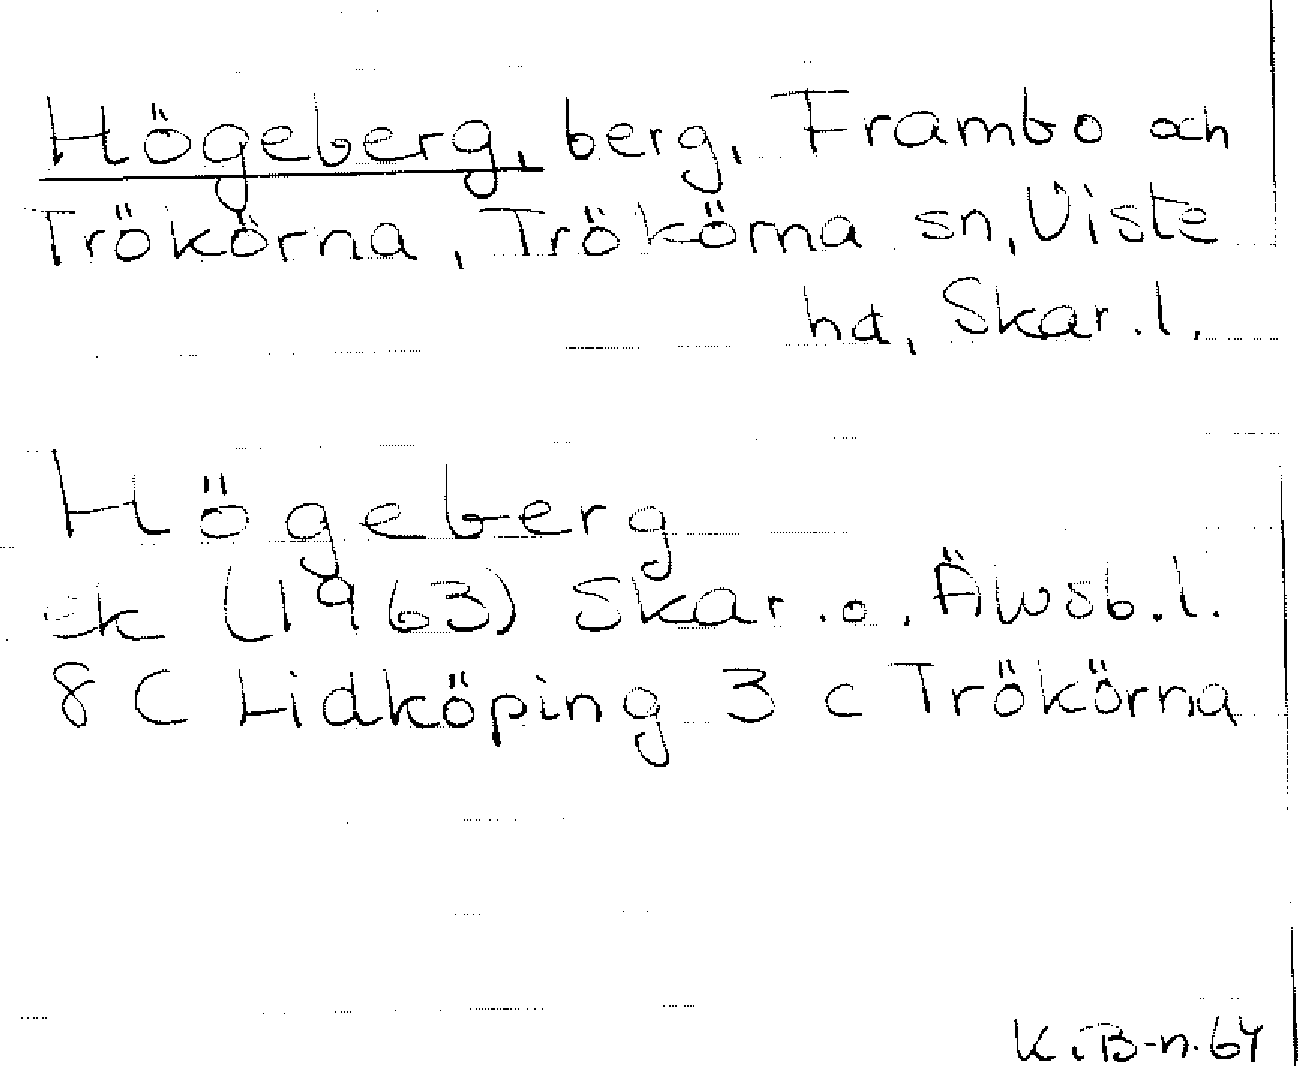 Högeberg, berg, Frambo och
Trökörna, Trökörna sn, Viste
hd, Skar. l.
Högeberg
ek (1963) Skar. o. Älvsb. l.
8 C Lidköping 3 c Trökörna
K. B-n. 64